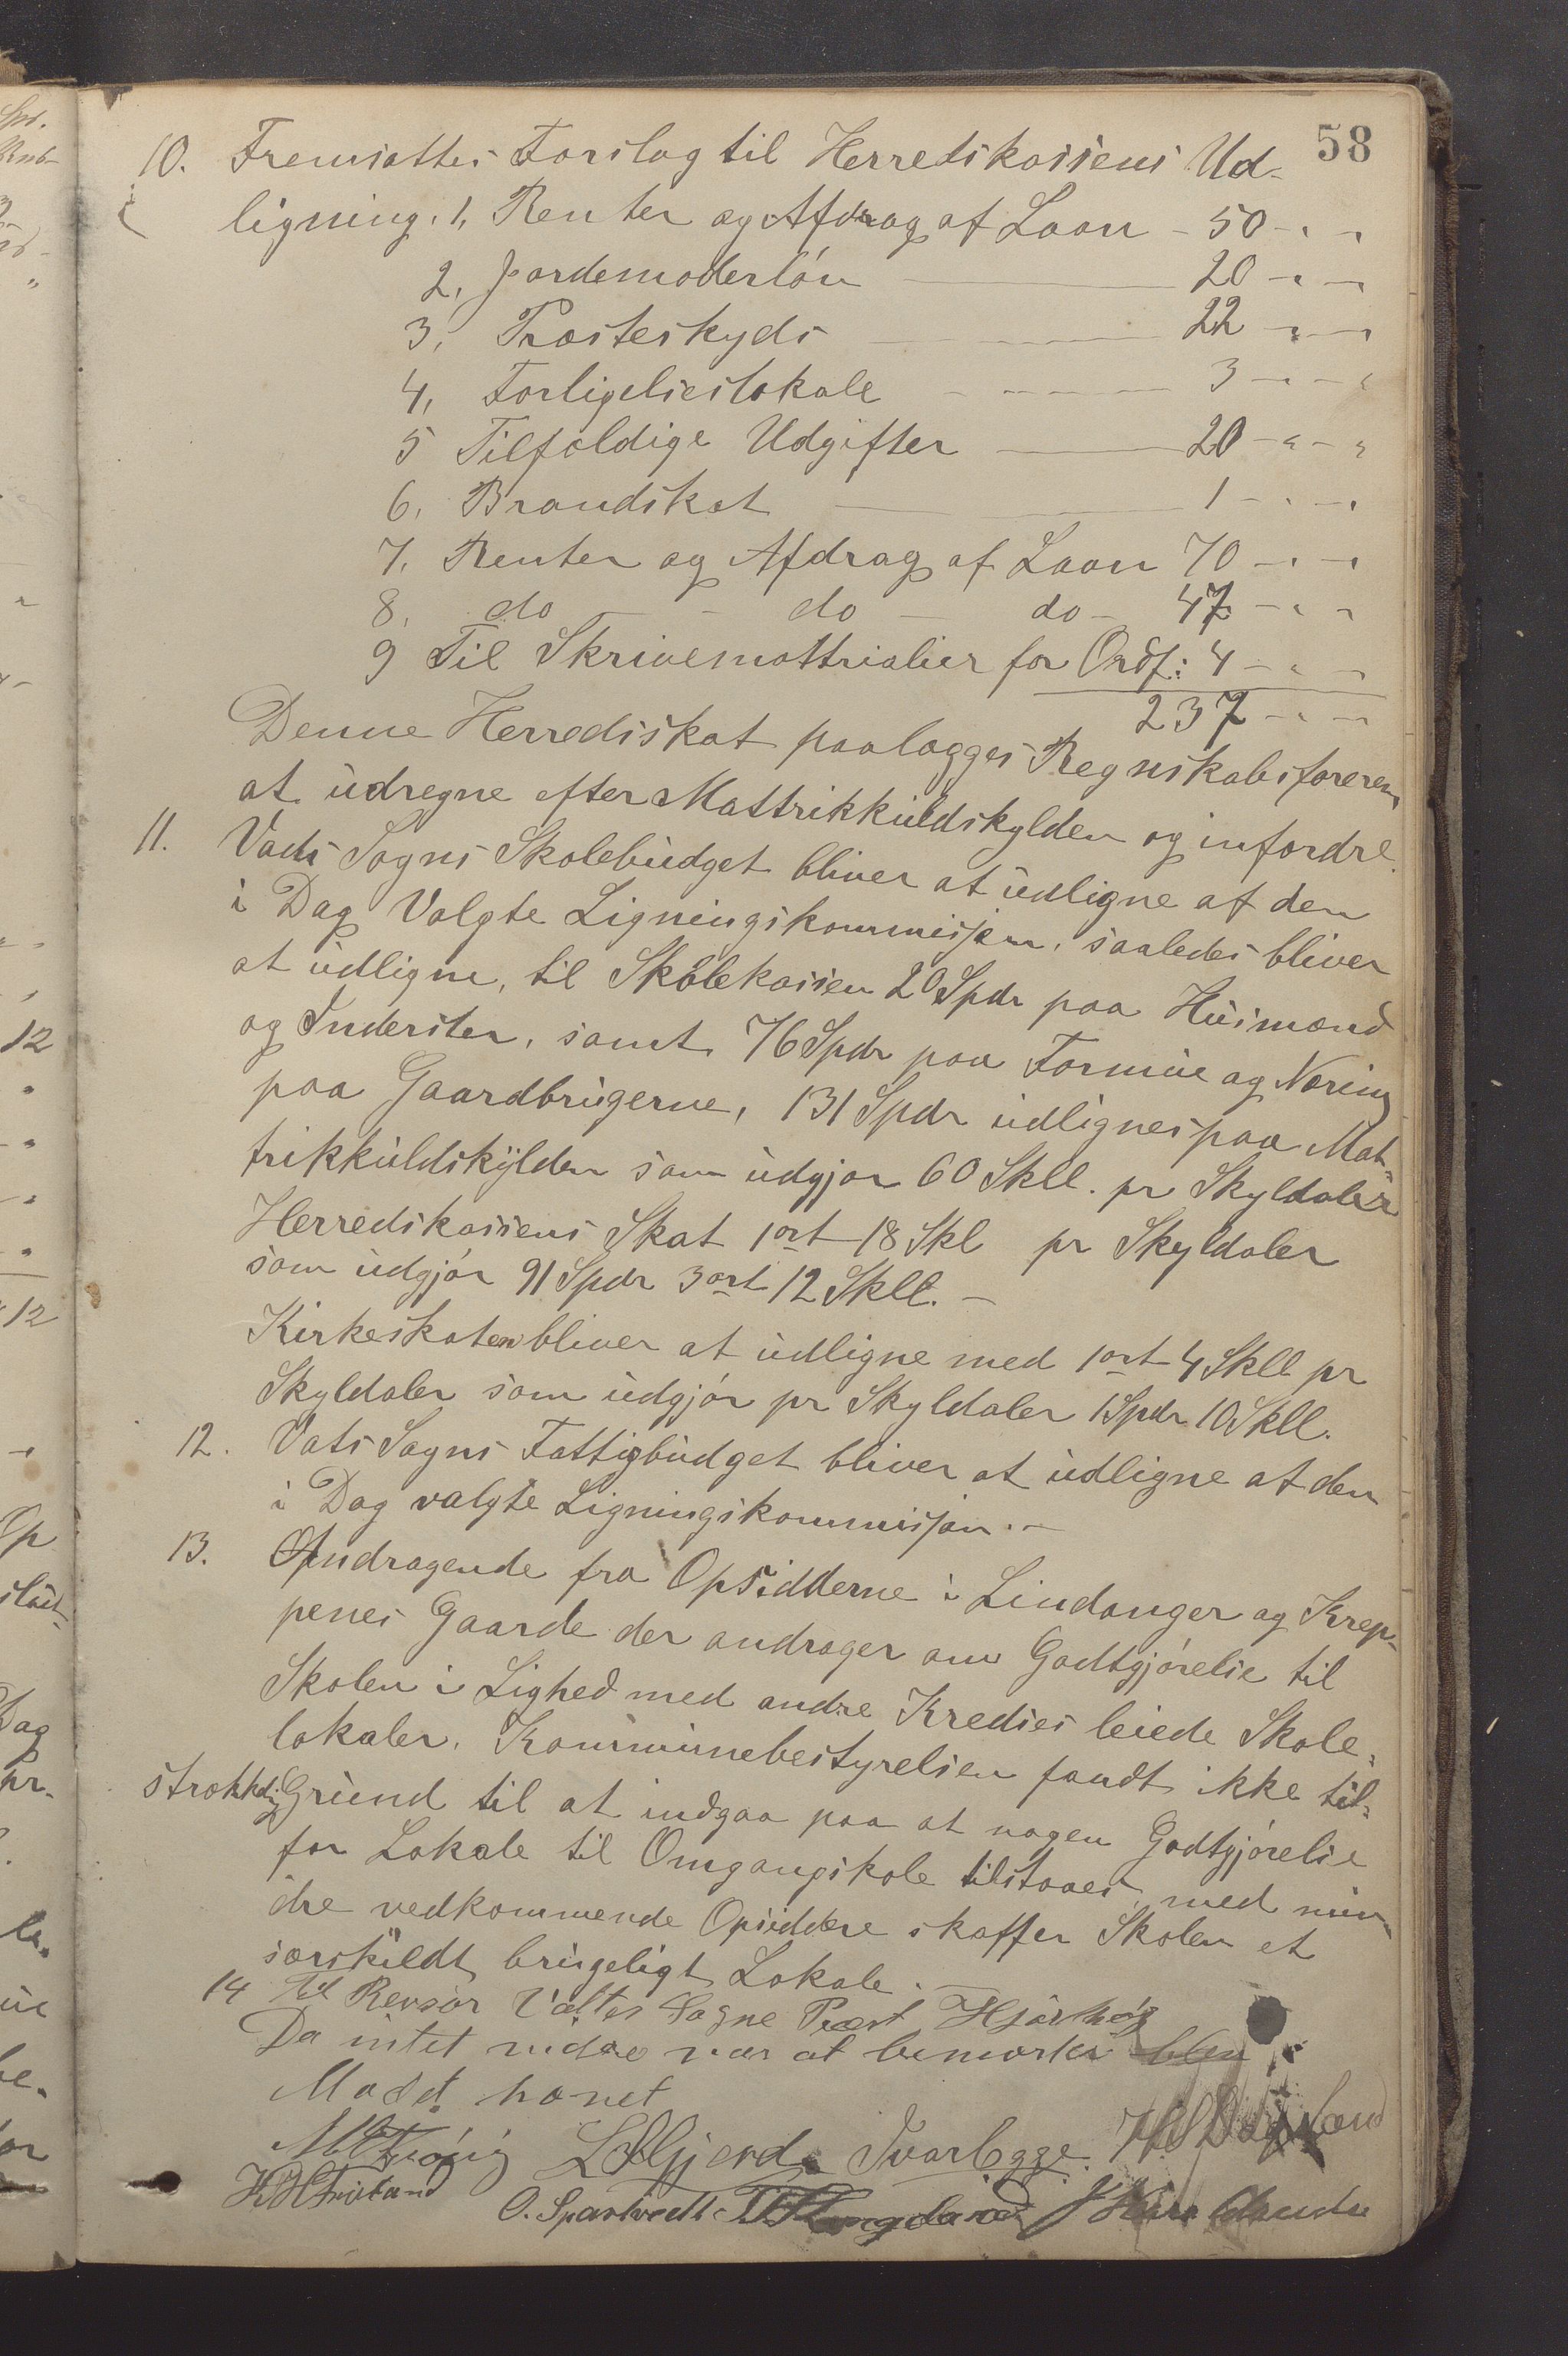 58
10. Fremsattes Forslag til Herredskassens Ud-
ligning. 1, Renter og Afdrag af Laan - 50 - " "
2, Jordemoderløn 20 - " -"
3, Præsteskyds 22 - " -"
4, Forligelseslokale 3 - " - "
5 Tilfældige Udgifter 20 - " - "
6, Brandskat 1 - " - "
7, Renter og Afdrag af Laan 70 - " - "
8, do - do - do - 47 - " - "
9 Til Skrivemattrialier for Ordf: 4 - " -
237 - " -
Denne Herredsskat paalægges Regnskabsføreren
at udregne efter Mattrikkuldskylden og infordre.
11. Vads Sogns Skolebudget bliver at udligne af den
i Dag Valgte Ligningskommisjon, saaledes bliver
at udligne, til Skolekassen 20 Spdr paa Husmænd
og Inderster, samt 76 Spdr paa Formue og Næring
paa Gaardbrugerne, 131 Spdr udlignes paa Mat-
trikkuldskylden som udgjør 60 Skll. pr Skyldaler
Herredskassens Skat 1 ort 18 Skl pr Skyldaler
som udgjør 91 Spdr 3 ort 12 Skll. -
Kirkeskaten bliver at udligne med 1 ort 4 Skll pr
Skyldaler som udgjør pr Skyldaler 1 Spdr 10 Skll.
12. Vats Sogns Fattigbudget bliver at udligne af den
i Dag valgte Ligningskommisjon. -
13. Andragende fra Opsidderne i Lindanger og Krep-
penes Gaarde der andrager om Godtgjørelse til
Skolen i Lighed med andre Kredses leiede Skole-
lokaler. Kommunebestyrelsen fandt ikke til-
strækkelig Grund til at indgaa paa at nogen Godtgjørelse
for Lokale til Omgangskole tilstaaes, med min-
dre vedkommende Opsiddere skaffer Skolen et
særskildt brugeligt Lokale. -
14 Til Revsor Vattes Sogne Præst Hjorthøg
Da intet videre var at bemærke blev
Mødet hævet
L Øljerd. Ivar Egge.
O. Spartvedt